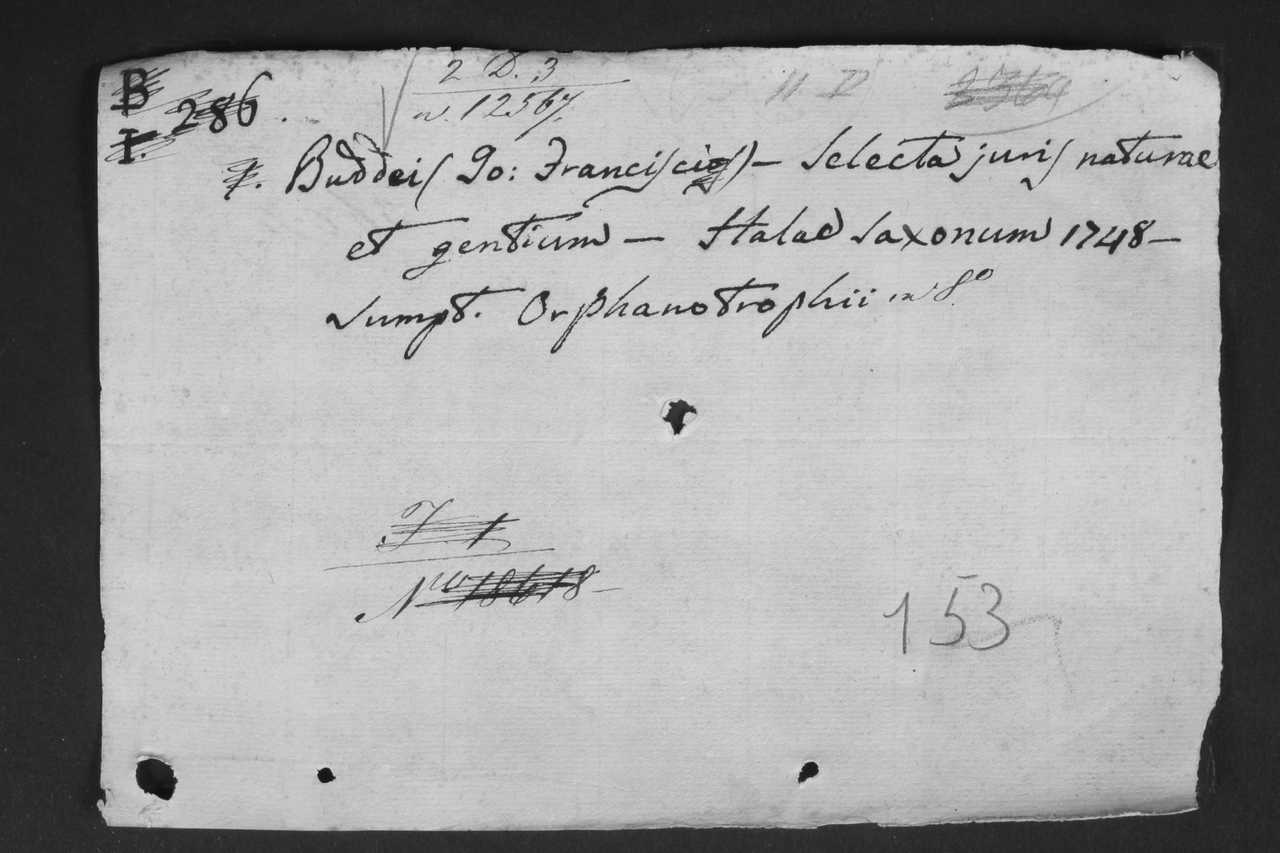 B
I. 286.
2 D. 3
n. 12567.
11 D
Buddei (Jo: Francisci) – Selecta juris naturae
et gentium – Halae Saxonum 1748 –
Sumpt. Orphanotrophii in 8º
J 1
Nro 18618 –
153